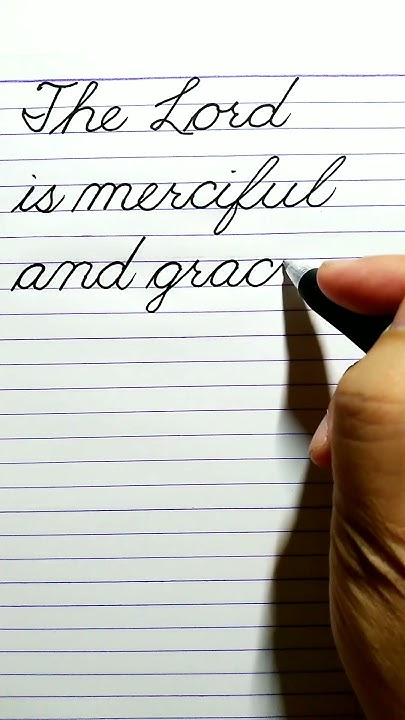 The Lord
is merciful
and grac